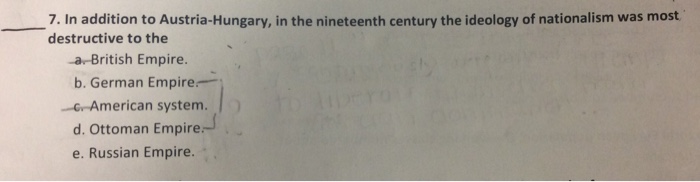 7. In addition to Austria-Hungary, in the nineteenth century the ideology of nationalism was most
destructive to the
a. British Empire.
b. German Empire.
c. American system.
d. Ottoman Empire.
e. Russian Empire.